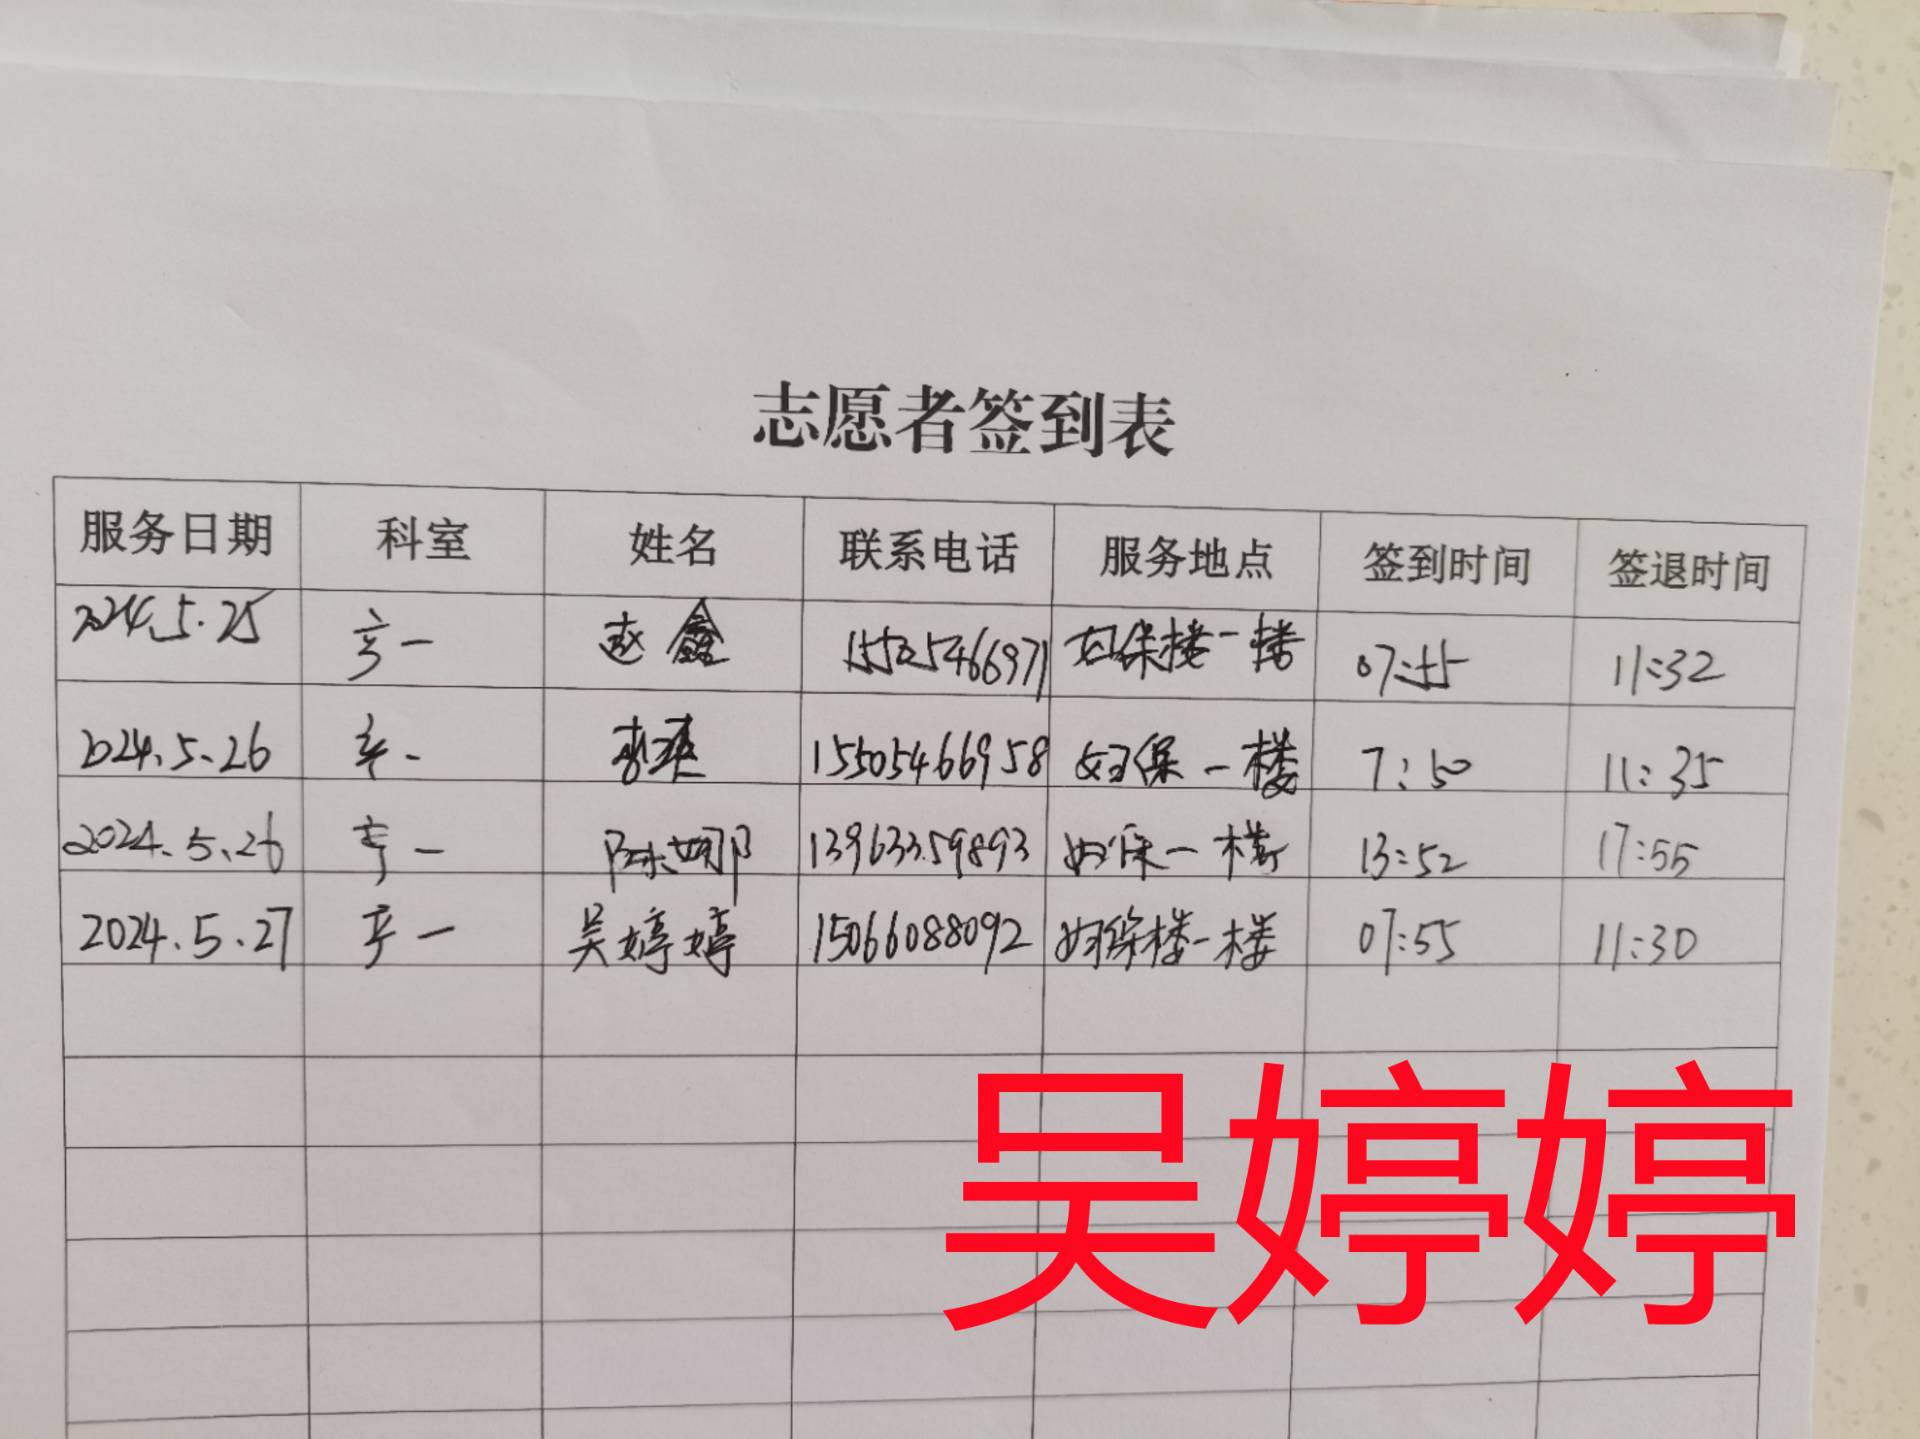 志愿者签到表
服务日期 科室 姓名 联系电话 服务地点 签到时间 签退时间
2024.5.25 产一 赵鑫 15505466971 妇保楼一楼 07:55 11:32
2024.5.26 产一 15505466958 妇保一楼 7:50 11:35
2024.5.26 产一 陈娜 13963359893 妇保一楼 13:52 17:55
2024.5.27 产一 吴婷婷 15066088092 妇保楼一楼 07:55 11:30
吴婷婷